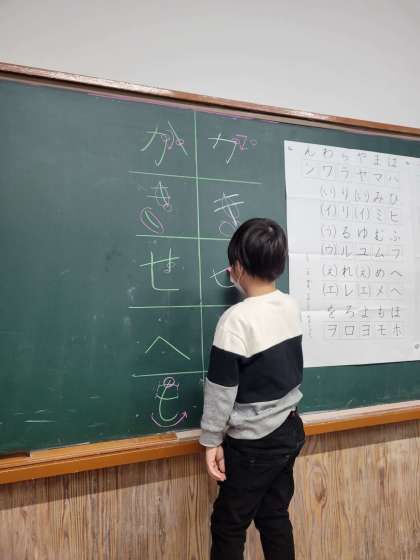 か カ
き き
せ セ
へ
も
ん わ ら や ま は
ン ワ ラ ヤ マ ハ
(い) り (い) み ひ
(イ) リ (イ) ミ ヒ
(う) る ゆ む ふ
(ウ) ル ユ ム フ
(え) れ (え) め へ
(エ) レ (エ) メ ヘ
を ろ よ も ほ
ヲ ロ ヨ モ ホ